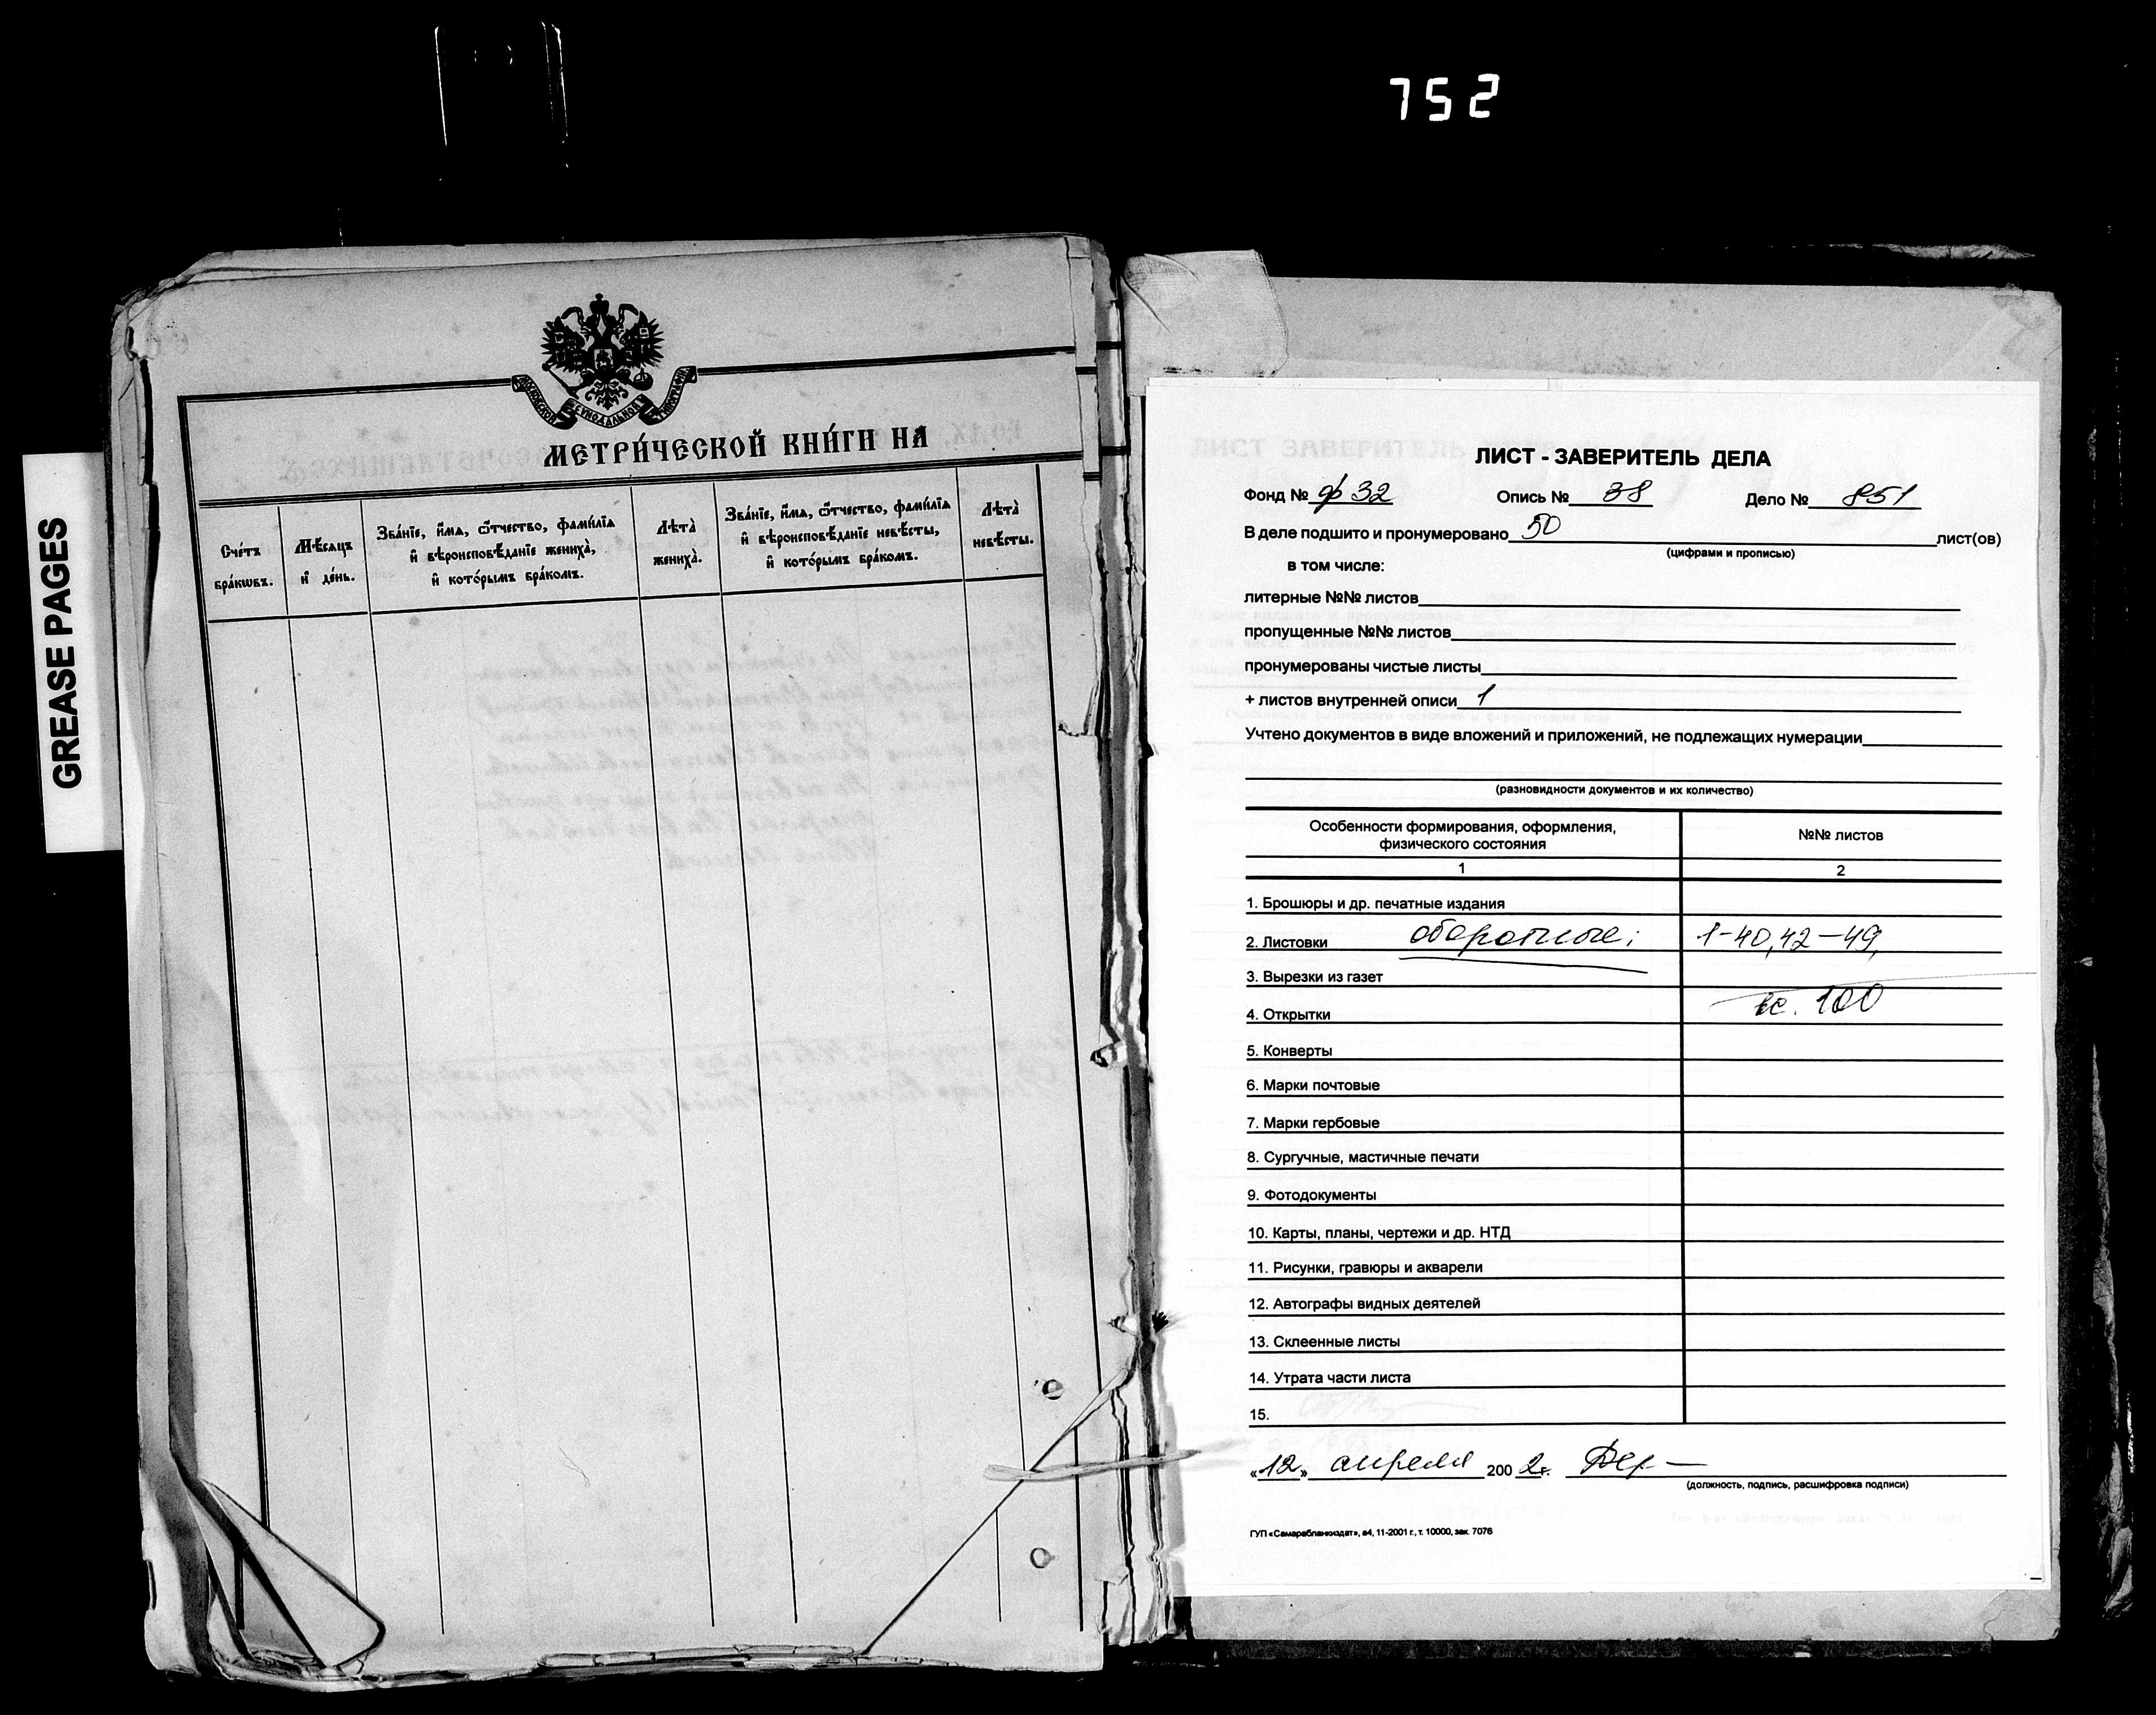 752
GREASE PAGES
МОСКОВСКОЙ СѴНОДАЛЬНОЙ ТИПОГРАФІИ
МЕТРИ́ЧЕСКОЙ КНИ́ГИ НА
Сче́тъ бра́кѡвъ.
Мѣ́сяцъ и҆ де́нь.
Зва́нїе, и҆́мѧ, ѻ҆́тчество, фами́лїѧ
и҆ вѣроисповѣ́данїе женихà,
и҆ кото́рымъ бра́комъ.
Лѣтà женихà.
Зва́нїе, и҆́мѧ, ѻ҆́тчество, фами́лїѧ
и҆ вѣроисповѣ́данїе невѣ́сты,
и҆ кото́рымъ бра́комъ.
Лѣтà невѣ́сты.
ЛИСТ - ЗАВЕРИТЕЛЬ ДЕЛА
Фонд № ф 32 Опись № 38 Дело № 851
В деле подшито и пронумеровано 50 лист(ов)
(цифрами и прописью)
в том числе:
литерные №№ листов
пропущенные №№ листов
пронумерованы чистые листы
+ листов внутренней описи 1
Учтено документов в виде вложений и приложений, не подлежащих нумерации
(разновидности документов и их количество)
Особенности формирования, оформления,
физического состояния
№№ листов
1 2
1. Брошюры и др. печатные издания
2. Листовки оборотные: 1-40,42-49,
3. Вырезки из газет
4. Открытки 100
5. Конверты
6. Марки почтовые
7. Марки гербовые
8. Сургучные, мастичные печати
9. Фотодокументы
10. Карты, планы, чертежи и др. НТД
11. Рисунки, гравюры и акварели
12. Автографы видных деятелей
13. Склеенные листы
14. Утрата части листа
15.
«12» апреля 200 2г.
(должность, подпись, расшифровка подписи)
ГУП «Самарабланкиздат», а4, 11-2001 г., т. 10000, зак. 7076